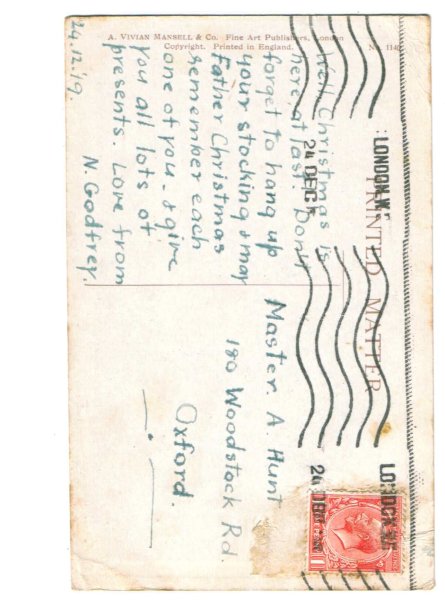 A. VIVIAN MANSELL & Co. Fine Art Publishers, London
Copyright. Printed in England.
PRINTED MATTER
LONDON.W.
24 DEC
24 DEC
ONE PENNY
24.12.'19.
Well Christmas is
here at last. Don't
forget to hang up
your stocking & may
Father Christmas
remember each
one of you. & give
you all lots of
presents. Love from
N. Godfrey.
Master. A. Hunt
180 Woodstock Rd.
Oxford.